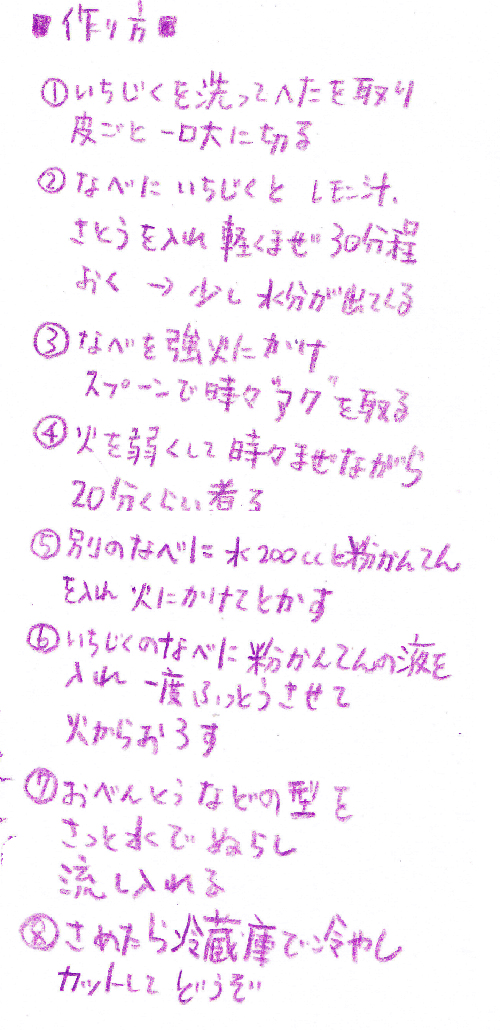 ■作り方■
①いちじくを洗ってへたを取り
皮ごと一口大に切る
②なべにいちじくと レモン汁、
さとうを入れ 軽くまぜ 30分程
おく → 少し 水分が出てくる
③なべを強火にかけ
スプーンで時々"アク"を取る
④火を弱くして時々まぜながら
20分くらい煮る
⑤別のなべに水200ccと粉かんてん
を入れ 火にかけてとかす
⑥いちじくのなべに粉かんてんの液を
入れ 一度ふっとうさせて
火からおろす
⑦おべんとうなどの型を
さっと水でぬらし
流し入れる
⑧さめたら冷蔵庫で冷やし
カットして どうぞ